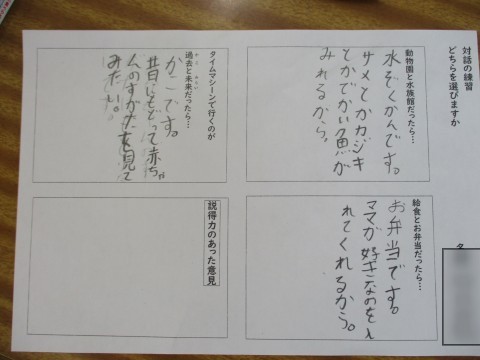 対話の練習
どちらを選びますか
動物園と水族館だったら…
水ぞくかんです。
サメとかカジキ
とかでかい魚が
みれるから。
給食とお弁当だったら…
お弁当です。
ママが好きなのを入
れてくれるから。
タイムマシーンで行くのが
過去と未来だったら…
かこです。
昔にもどって赤ちゃ
んのすがたを見て
みたい。
説得力のあった意見